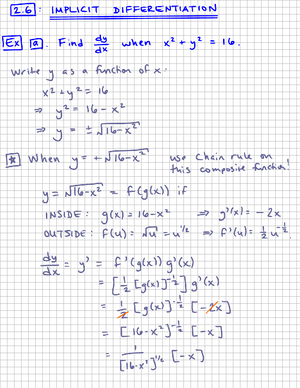 2.6: IMPLICIT DIFFERENTIATION
Ex a. Find dy/dx when x² + y² = 16.
Write y as a function of x:
x² + y² = 16
⇒ y² = 16 - x²
⇒ y = ± √(16-x²)
* When y = +√(16-x²) use Chain rule on this composite function!
y = √(16-x²) = f(g(x)) if
INSIDE: g(x) = 16-x² ⇒ g'(x) = -2x
OUTSIDE: f(u) = √u = u^(1/2) ⇒ f'(u) = 1/2 u^(-1/2)
dy/dx = y' = f'(g(x)) g'(x)
= [1/2 [g(x)]^(-1/2)] g'(x)
= 1/2 [g(x)]^(-1/2) [-2x]
= [16-x²]^(-1/2) [-x]
= 1/[16-x²]^(1/2) [-x]